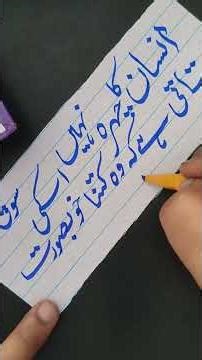 انسان کا چہرہ نہیں اسکی سوچ
بتاتی ہے کہ وہ کتنا خوبصورت